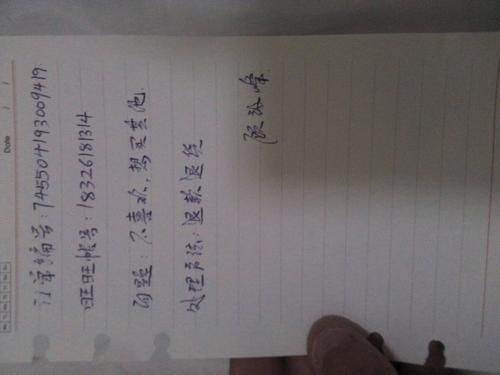 Date / /
订单编号:745504193009419
旺旺帐号:18326181314
问题:不喜欢,想买其他.
处理方法:退款退货